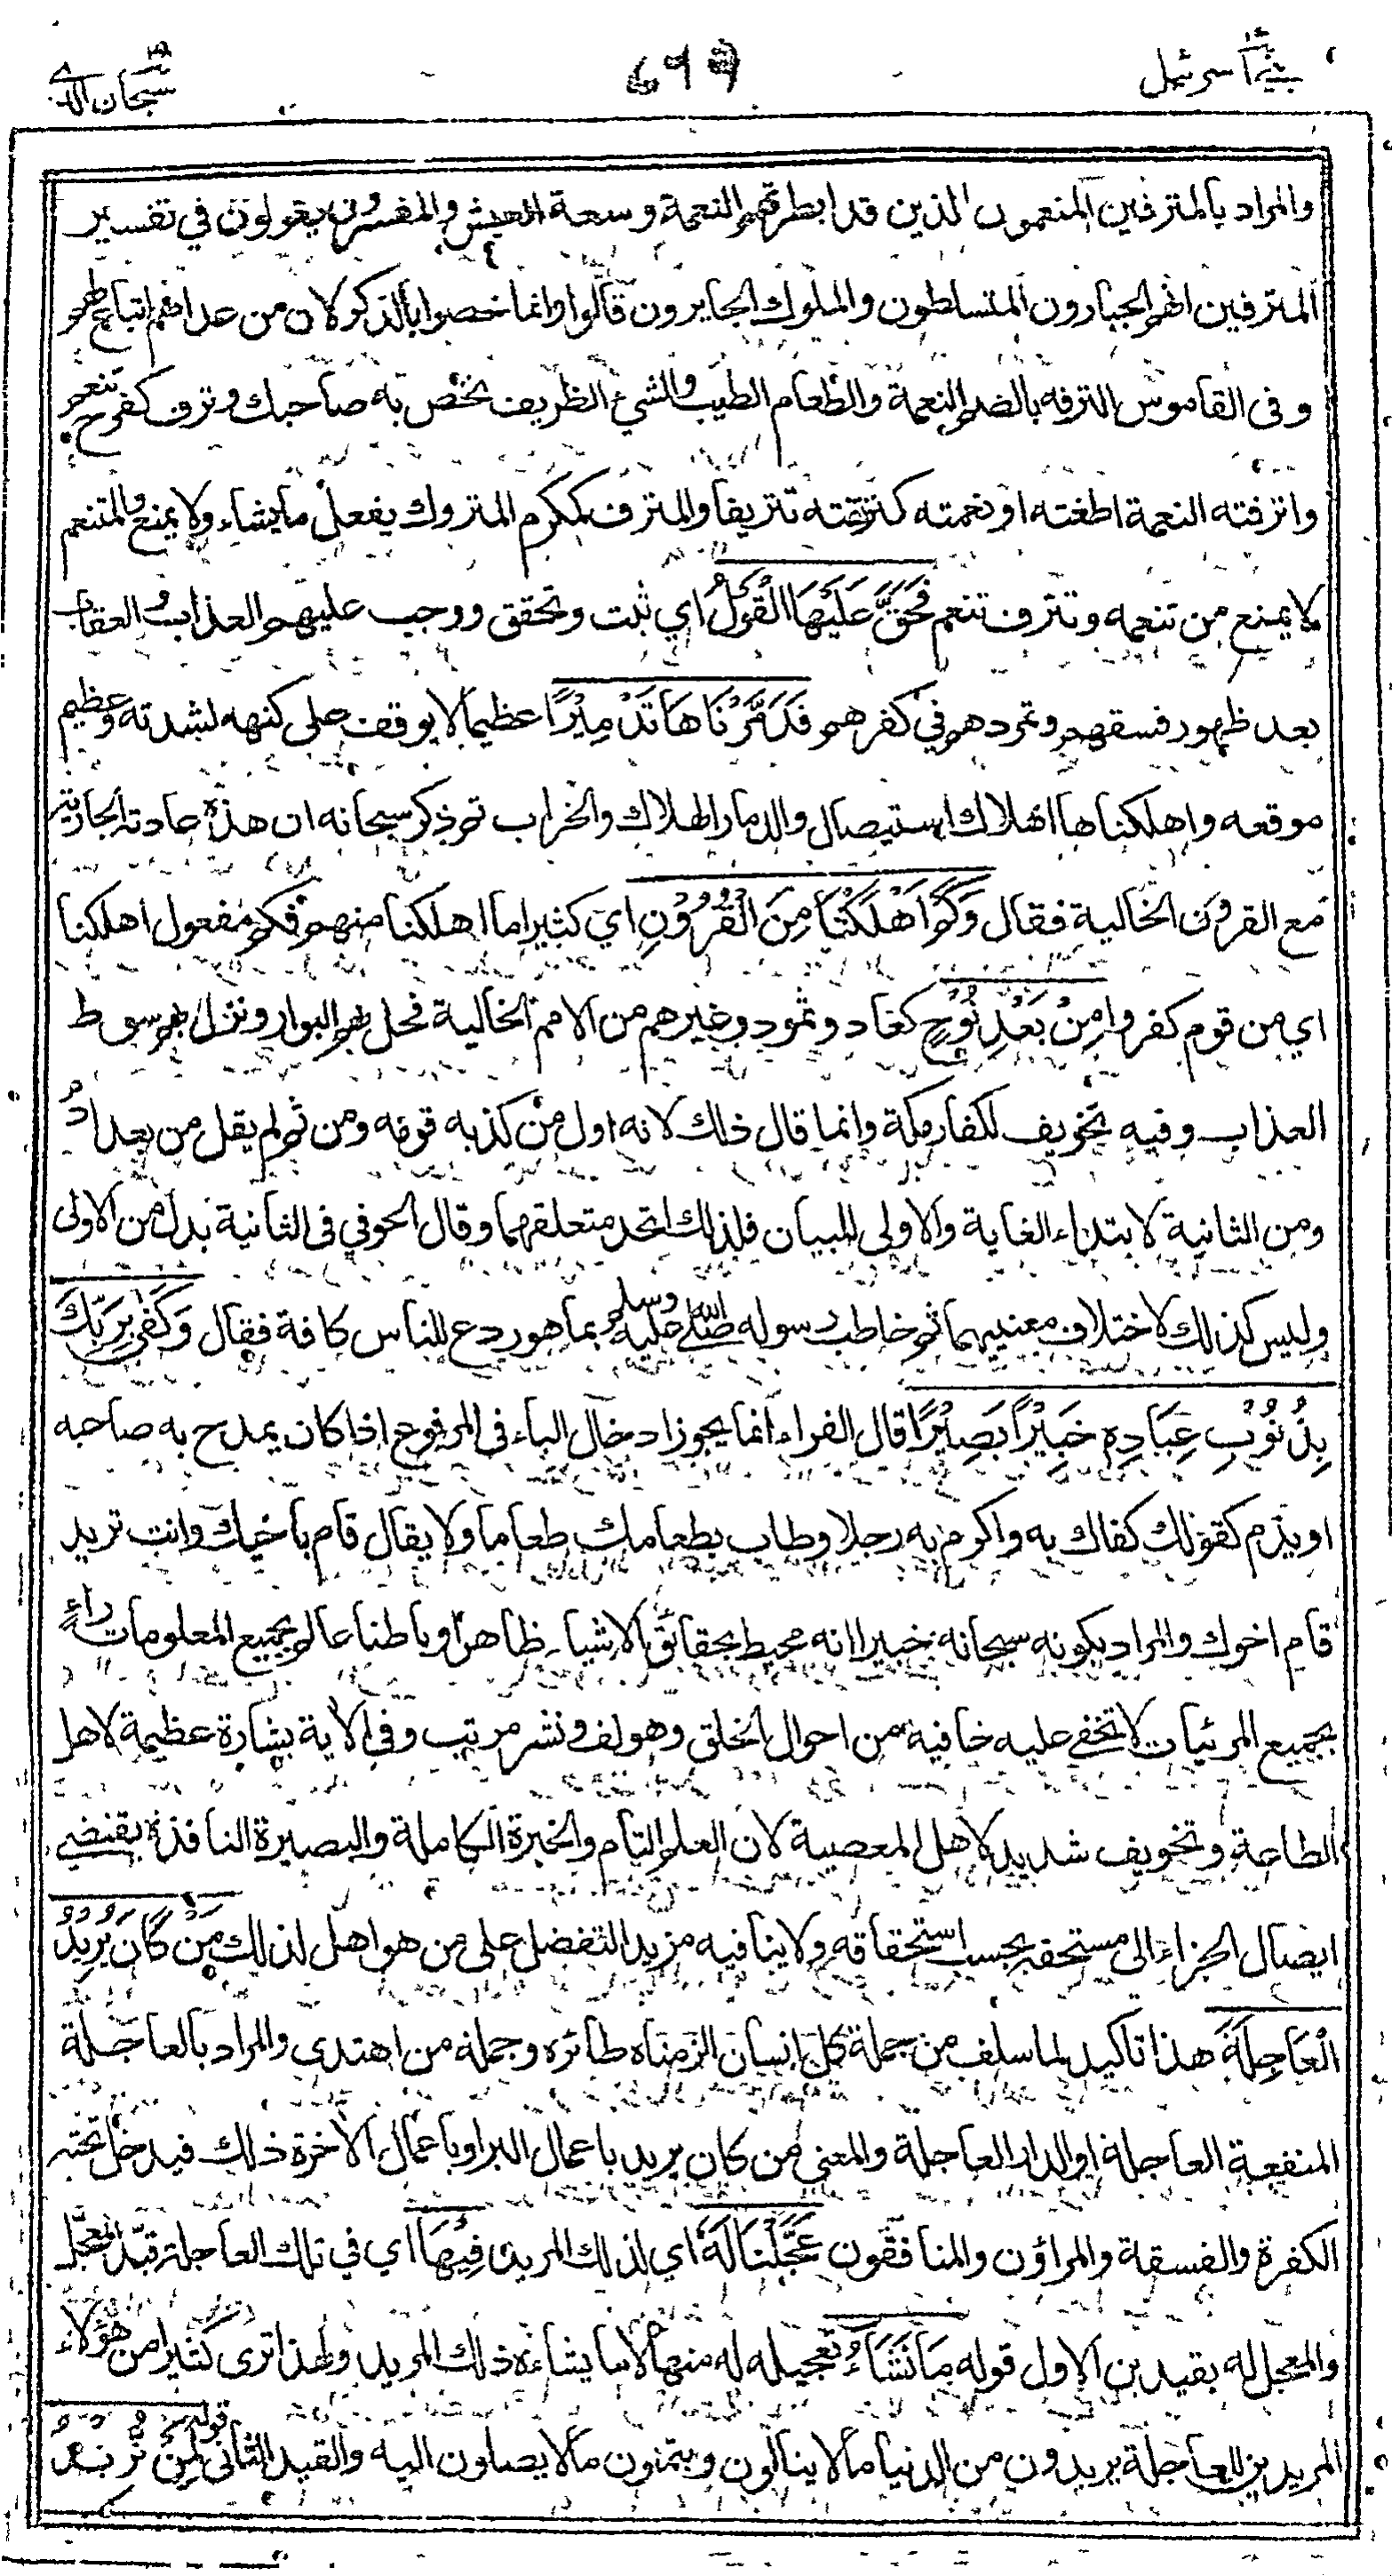 بني اسرائيل ٦٩٩ سبحان الذي
والمراد بالمترفين المنعمون الذين قد ابطرتهم النعمة وسعة العيش والمفسرون يقولون في تفسير
المترفين انهم الجبارون المتسلطون والملوك الجايرون قالوا وانما خصوا بالذكر لان من عداهم اتباع لهم
وفى القاموس الترفه بالضم النعمة والطعام الطيب والشيء الظريف تخص به صاحبك وترف كفرح تنعم
واترفته النعمة اطغته او نعمته كترفته تتريفا والمترف كمكرم المتروك يفعل ما يشاء ولا يمنع والمتنعم
لا يمنع من تنعمه وتترف تنعم فَحَقَّ عَلَيْهَا الْقَوْلُ اي ثبت وتحقق ووجب عليهم العذاب والعقاب
بعد ظهور فسقهم وتمردهم في كفرهم فَدَمَّرْنَاهَا تَدْمِيْرًا عظيما لا يوقف على كنهه لشدته وعظيم
موقعه واهلكناها اهلاك استيصال والدمار الهلاك والخراب ثم ذكر سبحانه ان هذه عادته الجارية
مع القرون الخالية فقال وَكَمْ اَهْلَكْنَا مِنَ الْقُرُوْنِ اي كثيرا ما اهلكنا منهم فكم مفعول اهلكنا
اي من قوم كفروا مِنْ بَعْدِ نُوْحٍ كعاد وثمود وغيرهم من الامم الخالية فحل بهم البوار ونزل بهم سوط
العذاب وفيه تخويف لكفار مكة وانما قال ذلك لانه اول من كذبه قومه ومن ثم لم يقل من بعد ادم
ومن الثانية لابتداء الغاية والاولى للبيان فلذلك اتحد متعلقهما وقال الحوفي فى الثانية بدل من الاولى
وليس كذلك لاختلاف معنييهما ثم خاطب رسوله صلى الله عليه وسلم بما هو ردع للناس كافة فقال وَكَفٰى بِرَبِّكَ
بِذُنُوْبِ عِبَادِهِ خَبِيْرًا بَصِيْرًا قال الفراء انما يجوز ادخال الباء فى المرفوع اذا كان يمدح به صاحبه
او يذم كقولك كفاك به واكرم به رجلا وطاب بطعامك طعاما ولا يقال قام باخيك وانت تريد
قام اخوك والمراد بكونه سبحانه خبيرا انه محيط بحقائق الاشياء ظاهرا وباطنا عالم بجميع المعلومات راءٍ
بجميع المرئيات لا تخفى عليه خافية من احوال الخلق وهو لف ونشر مرتب وفي الأية بشارة عظيمة لاهل
الطاعة وتخويف شديد لاهل المعصية لان العلم التام والخبرة الكاملة والبصيرة النافذة يقتضي
ايصال الجزاء الى مستحقه بحسب استحقاقه ولا ينافيه مزيد التفضل على من هو اهل لذلك مَنْ كَانَ يُرِيْدُ
الْعَاجِلَةَ هذا تاكيد لما سلف من جملة كل انسان الزمناه طائره وجملة من اهتدى والمراد بالعاجلة
المنفعة العاجلة او الدار العاجلة والمعنى من كان يريد باعمال البر او باعمال الأخرة ذلك فيدخل تحته
الكفرة والفسقة والمراؤن والمنافقون عَجَّلْنَا لَهٗ اي لذلك المريد فِيْهَا اي في تلك العاجلة قيد المعجل
والمعجل له بقيدين الاول قوله مَا نَشَاءُ تعجيله له منها لا ما يشاءه ذلك المريد ولهذا ترى كثيرا من هؤلاء
المريدين للعاجلة يريدون من الدنيا ما لا ينالون ويتمنون ما لا يصلون اليه والقيد الثانى قوله لِمَنْ نُّرِيْدُ